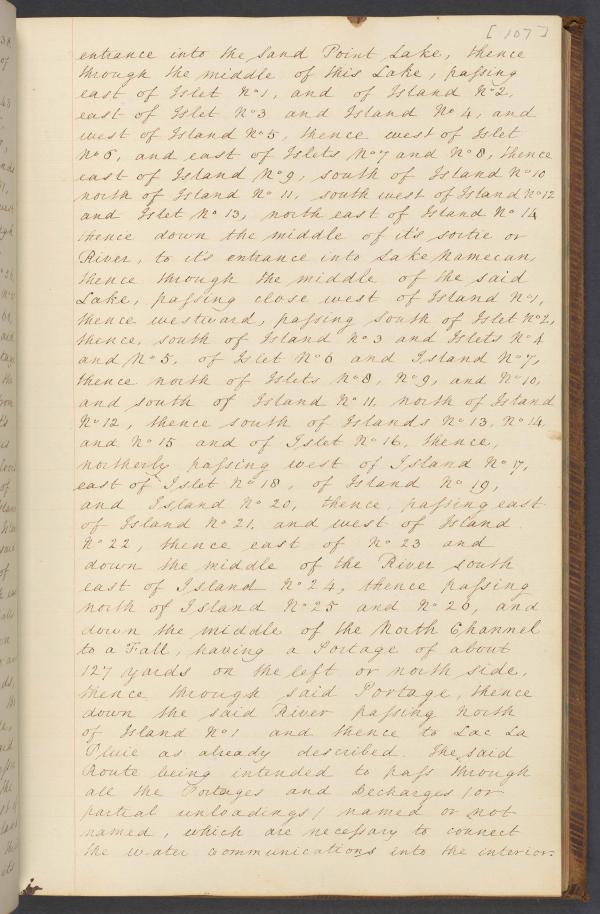 [ 107 ]
entrance into the Sand Point Lake, thence
through the middle of this Lake, passing
east of Islet No 1, and of Island No 2,
east of Islet No 3 and Island No 4, and
west of Island No 5, thence west of Islet
No 6, and east of Islets No 7 and No 8, thence
east of Island No 9, south of Island No 10
north of Island No 11, south west of Island No 12
and Islet No 13, north east of Island No 14
thence down the middle of it's sortie or
River, to it's entrance into Lake Namecan,
thence through the middle of the said
Lake, passing close west of Island No 1,
thence westward, passing south of Islet No 2,
thence, south of Island No 3 and Islets No 4
and No 5, of Islet No 6 and Island No 7,
thence north of Islets No 8, No 9, and No 10,
and south of Island No 11, north of Island
No 12, thence south of Islands No 13, No 14,
and No 15 and of Islet No 16, thence,
northerly passing west of Island No 17,
east of Islet No 18, of Island No 19,
and Island No 20, thence, passing east
of Island No 21, and west of Island
No 22, thence east of No 23 and
down the middle of the River south
east of Island No 24, thence passing
north of Island No 25 and No 26, and
down the middle of the North Channel
to a Fall, having a Portage of about
127 yards on the left or north side,
thence through said Portage, thence
down the said River passing North
of Island No 1 and thence to Lac La
Pluie as already described. The said
Route being intended to pass through
all the Portages and Decharges (or
partial unloadings) named or not
named, which are necessary to connect
the water communications into the interior.